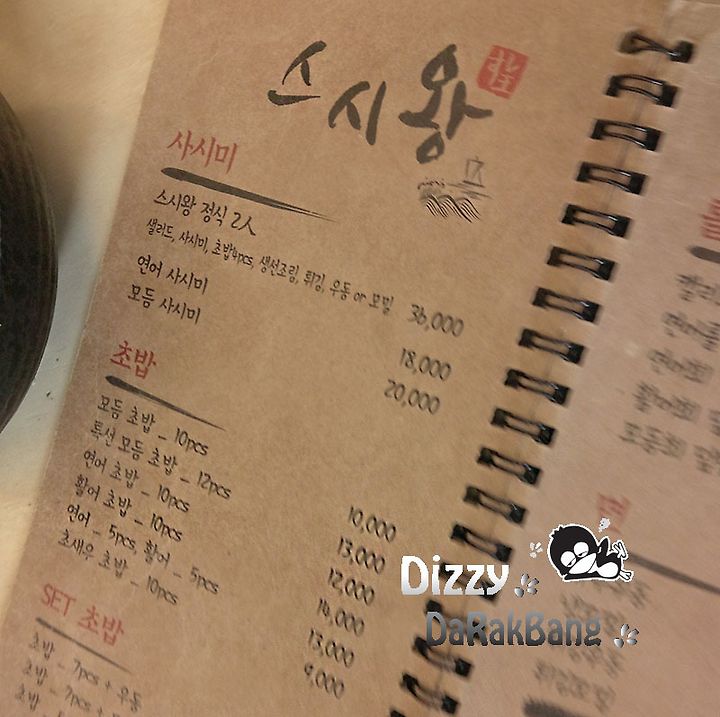 스시왕
사시미
스시왕 정식 2人
샐러드, 사시미, 초밥4pcs, 생선조림, 튀김, 우동 or 모밀 36,000
연어 사시미 18,000
모듬 사시미 20,000
초밥
모듬 초밥 - 10pcs 10,000
특선 모듬 초밥 - 12pcs 13,000
연어 초밥 - 10pcs 12,000
활어 초밥 - 10pcs 14,000
연어 - 5pcs, 활어 - 5pcs 13,000
초새우 초밥 - 10pcs 9,000
SET 초밥
초밥 - 7pcs + 우동
초밥 - 7pcs +
초밥
Dizzy
DaRakBang